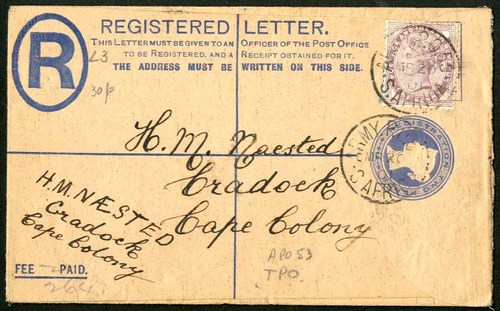 REGISTERED LETTER.
THIS LETTER MUST BE GIVEN TO AN OFFICER OF THE POST OFFICE
TO BE REGISTERED, AND A RECEIPT OBTAINED FOR IT.
THE ADDRESS MUST BE WRITTEN ON THIS SIDE.
R
£3
30/p
H. M. Næsted
Cradock
Cape Colony
H.M. NÆSTED
Cradock
Cape Colony
FEE PAID.
264
APO 53
TPO
ARMY
S. AFRICA
S. AFR
REGISTRATION TWO